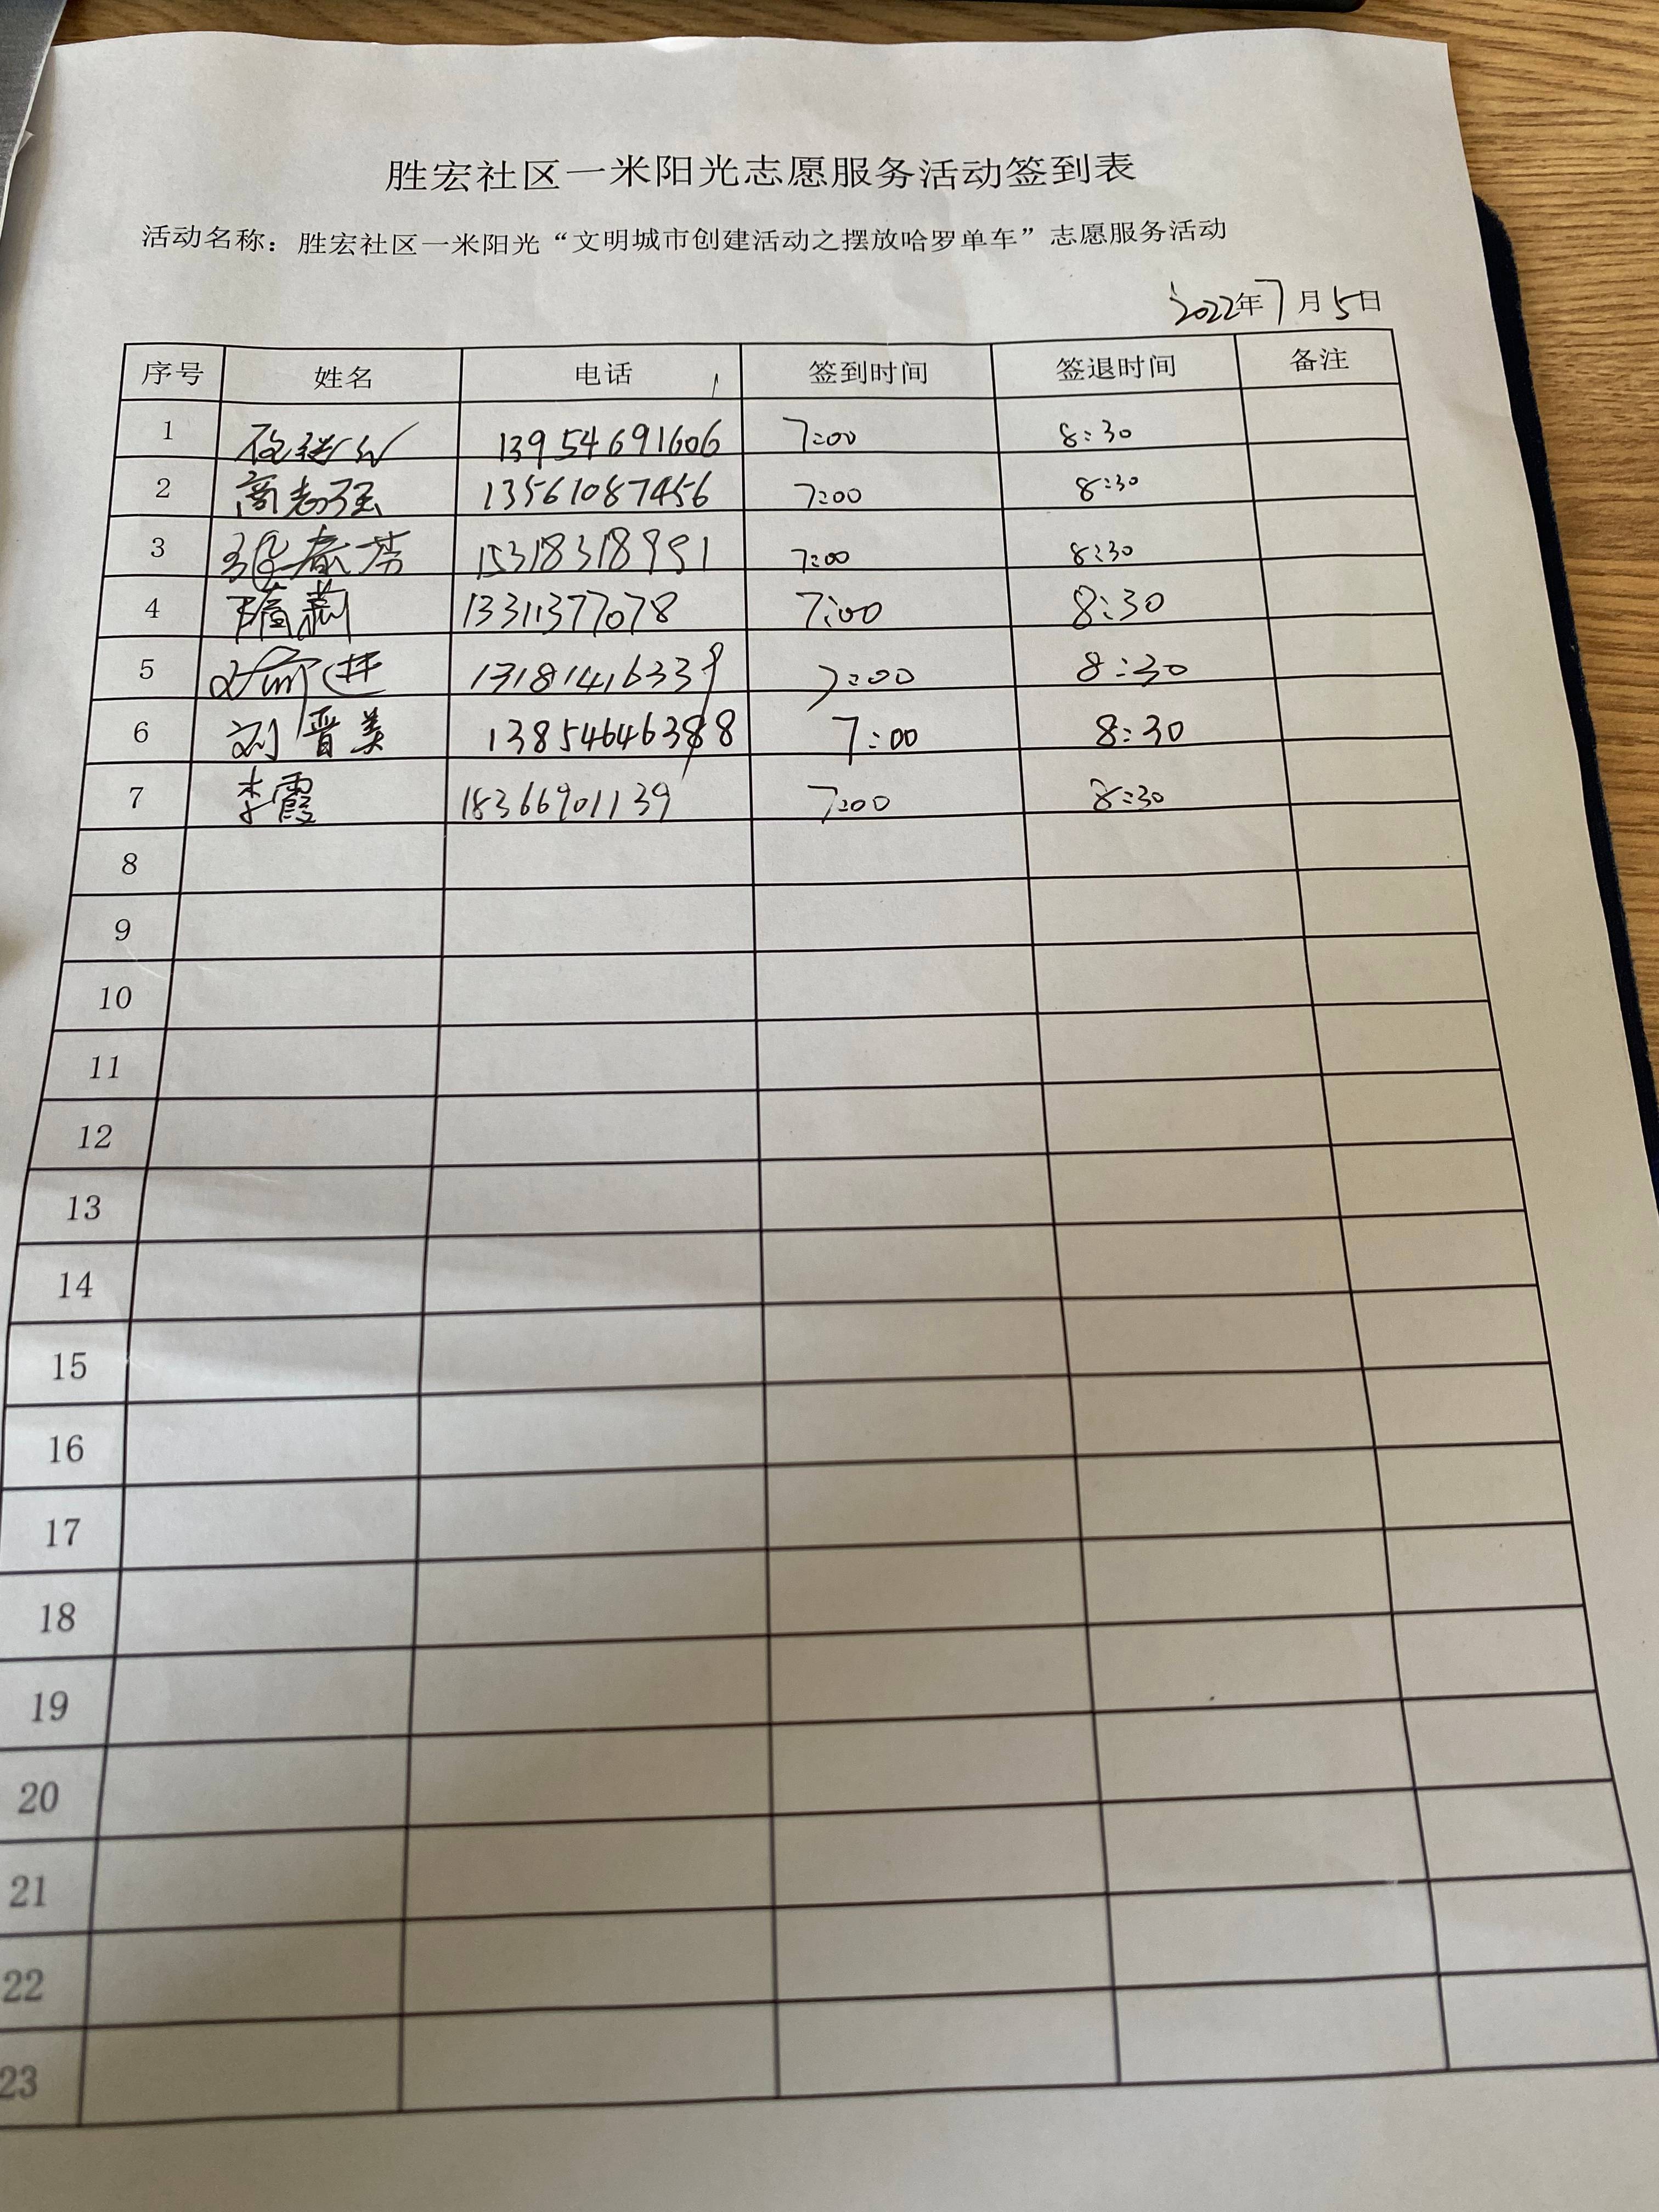 胜宏社区一米阳光志愿服务活动签到表
活动名称：胜宏社区一米阳光“文明城市创建活动之摆放哈罗单车”志愿服务活动
2022年7月5日
序号 姓名 电话 签到时间 签退时间 备注
1 13954691606 7:00 8:30
2 商志强 13561087456 7:00 8:30
3 张春芳 15318318991 7:00 8:30
4 隋莉 13311377078 7:00 8:30
5 13181416339 7:00 8:30
6 刘晋美 13854646388 7:00 8:30
7 李霞 18366901139 7:00 8:30
8
9
10
11
12
13
14
15
16
17
18
19
20
21
22
23